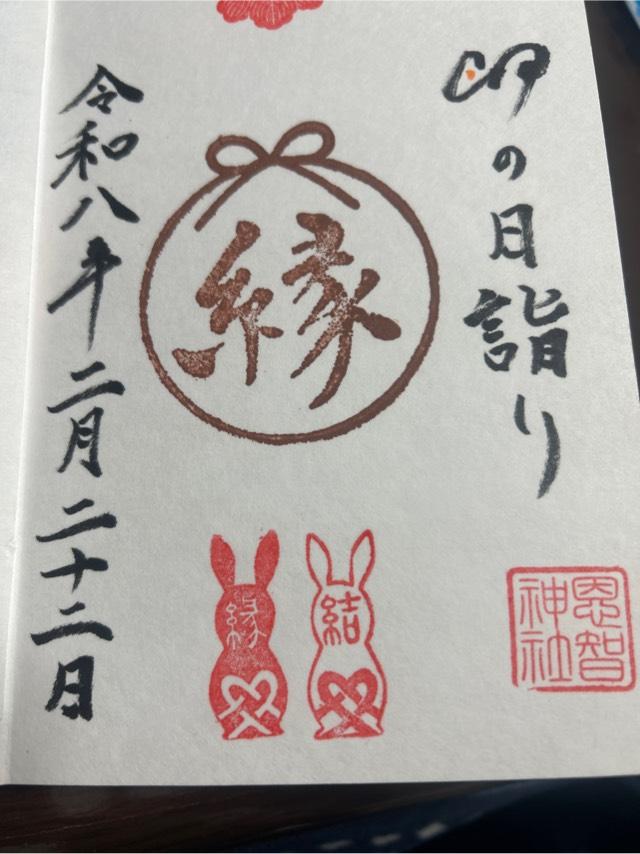 卯の日詣り
縁
縁
結
恩智
神社
令和八年二月二十二日